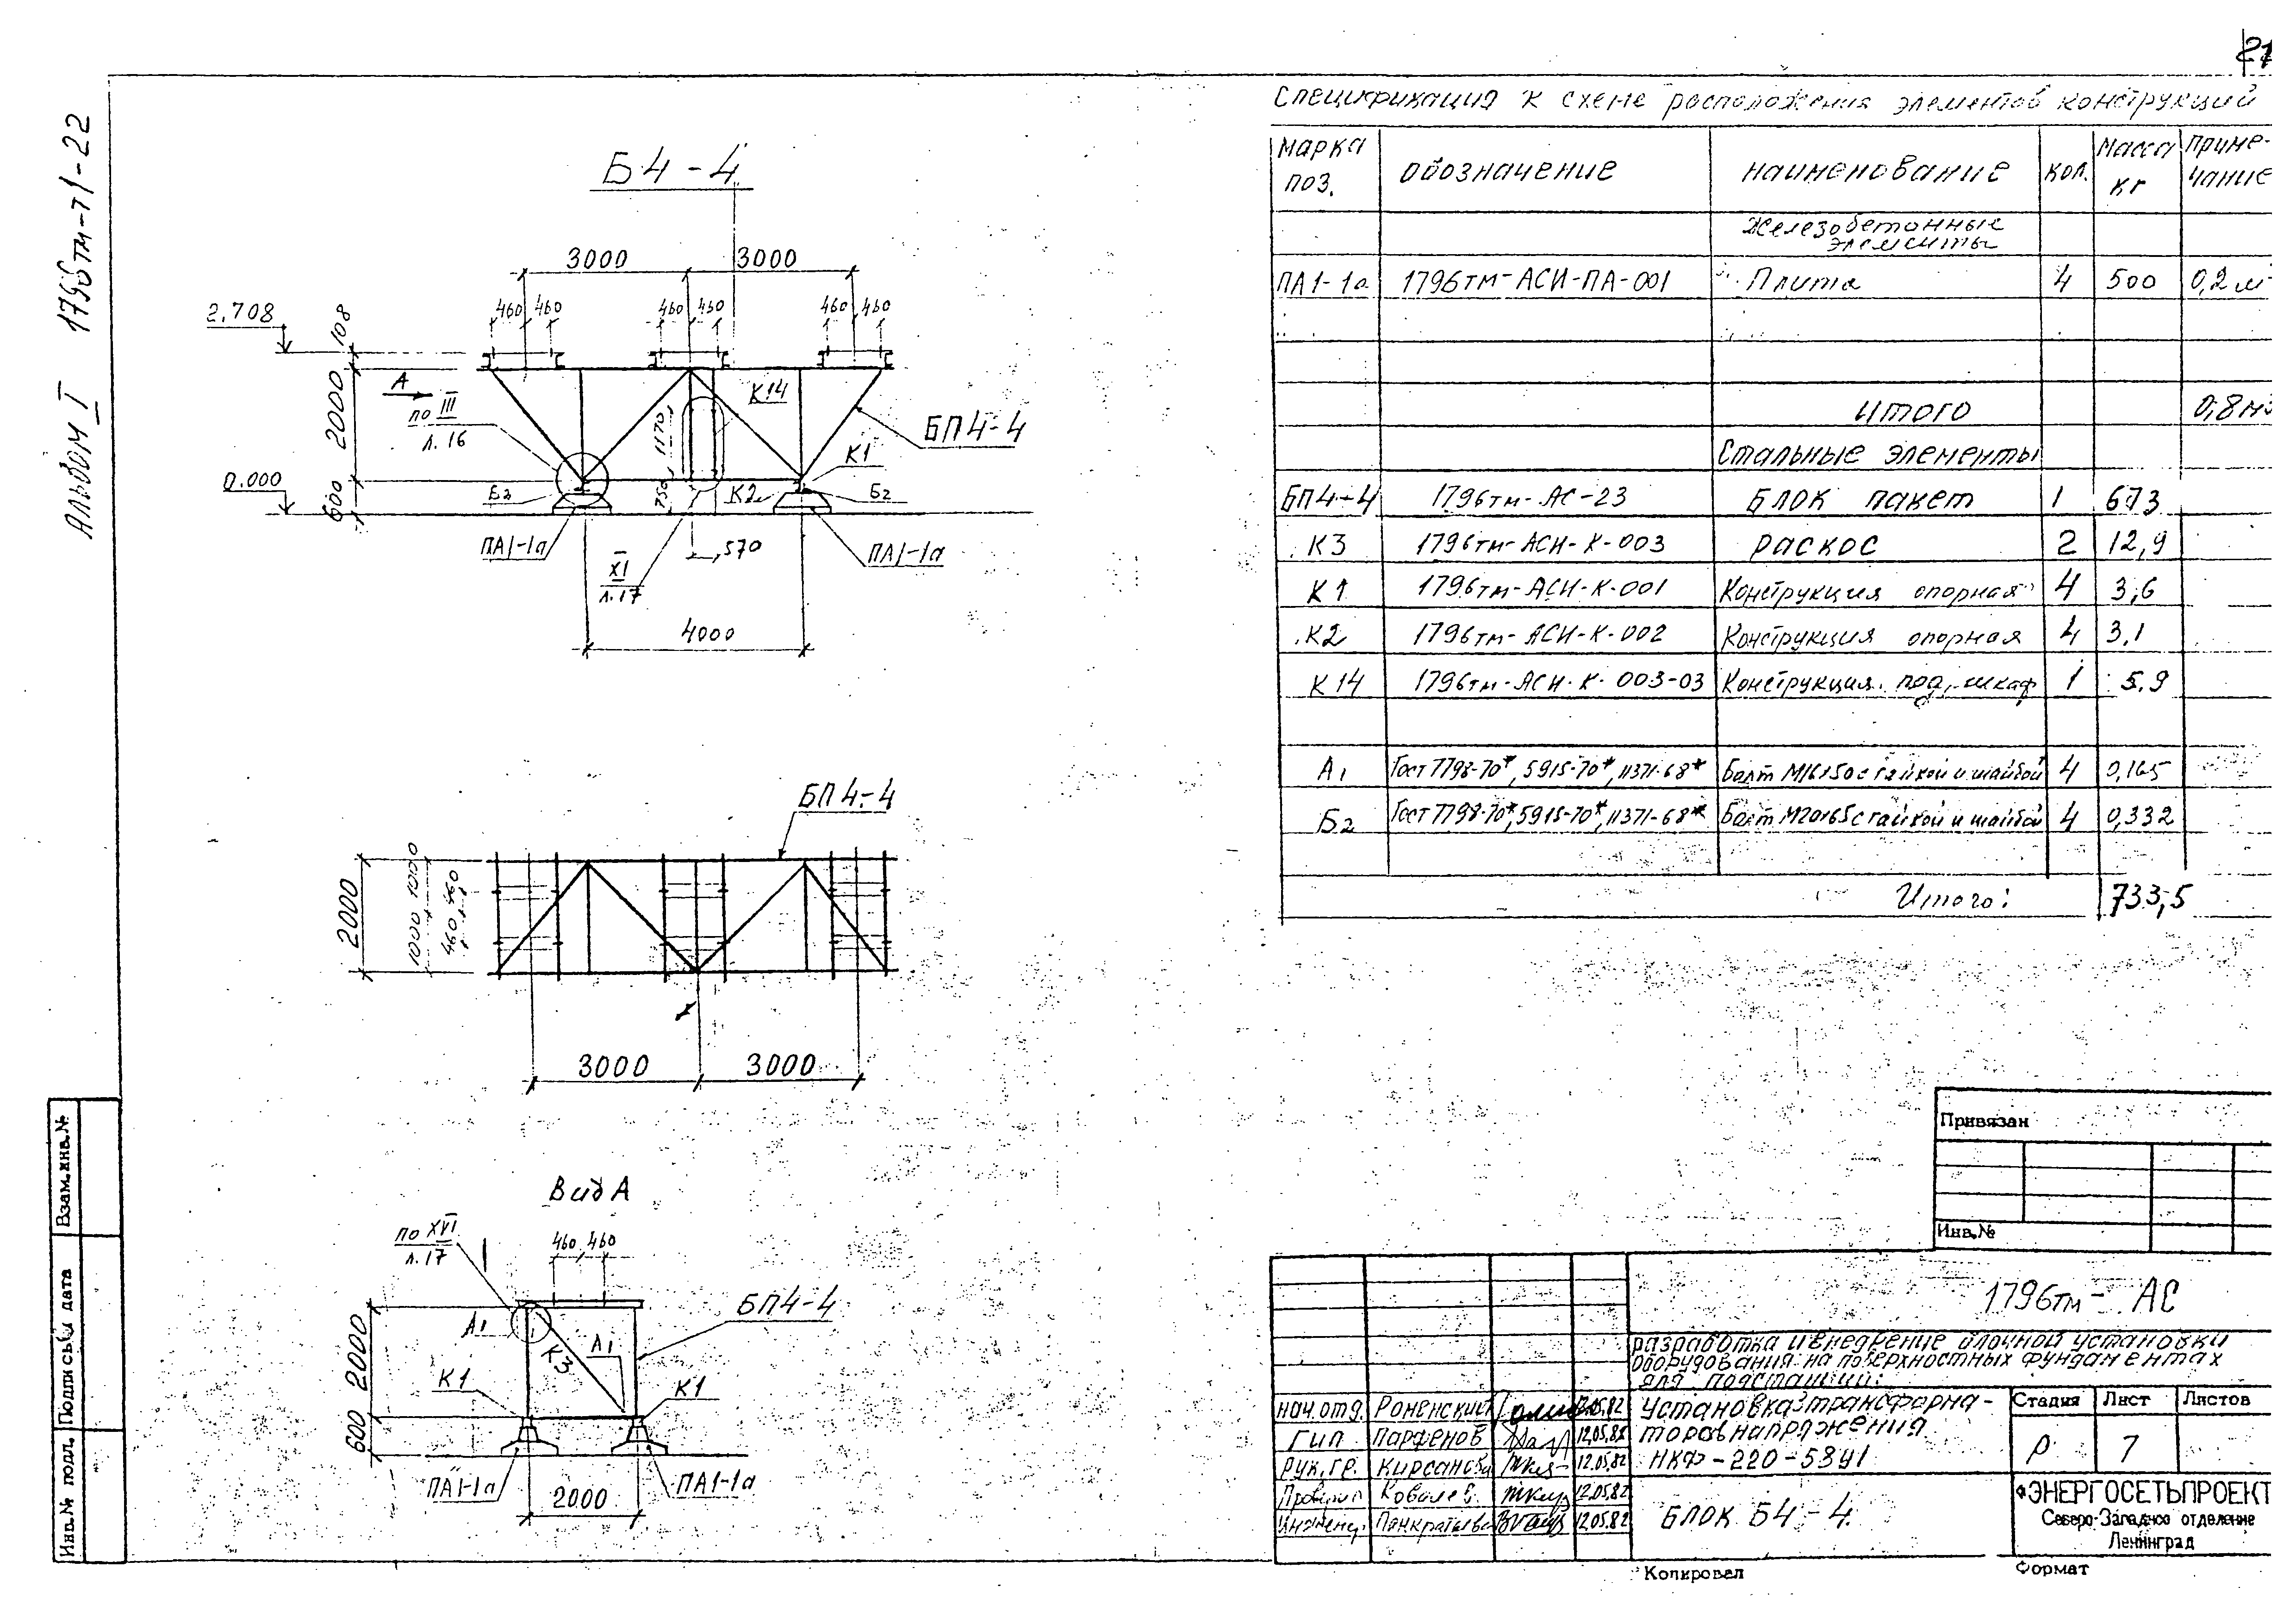 21
Альбом I 1796тм-т1-22
Б4-4
3000 3000
460 460 460 460 460 460
2.708
108
2000
600
0.000
А
по III
л. 16
К14
БП4-4
К1
1170
750
Б2 К2 Б2
ПА1-1а
ПА1-1а
570
XI
л.17
4000
БП4-4
2000
1000 1000
460 460
3000 3000
Вид А
по XVI
л.17
460 460
БП4-4
А1
А1
К3
К1
К1
2000
600
ПА1-1а
ПА1-1а
2000
Спецификация к схеме расположения элементов конструкций
Марка поз. Обозначение Наименование Кол. Масса кг Приме-чание
Железобетонные
элементы
ПА1-1а 1796тм-АСИ-ПА-001 Плита 4 500 0,2 м³
Итого 0,8м³
Стальные элементы
БП4-4 1796тм-АС-23 Блок пакет 1 673
К3 1796тм-АСИ-К-003 раскос 2 12,9
К1 1796тм-АСИ-К-001 Конструкция опорная 4 3,6
К2 1796тм-АСИ-К-002 Конструкция опорная 4 3,1
К14 1796тм-АСИ-К-003-03 Конструкция под шкаф 1 5,9
А1 Гост 7798-70*, 5915-70*, 11371-68* Болт М16х50 с гайкой и шайбой 4 0,165
Б2 Гост 7798-70*, 5915-70*, 11371-68* Болт М20х65 с гайкой и шайбой 4 0,332
Итого: 733,5
Привязан
Инв.№
1796тм- АС
разработка и внедрение блочной установки
оборудования на поверхностных фундаментах
для подстанций.
нач.отд. Роменский 12.05.82
Гип Парфенов 12.05.82
Рук.гр. Кирсанова 12.05.82
Проверил Ковалев 12.05.82
Инженер Панкратьева 12.05.82
Установка трансформа-
торов напряжения
НКФ-220-58У1
Стадия Лист Листов
Р 7
Блок Б4-4
«ЭНЕРГОСЕТЬПРОЕКТ
Северо-Западное отделение
Ленинград
Копировал
Формат
Взам.инв.№
Подпись и дата
Инв.№ подл.